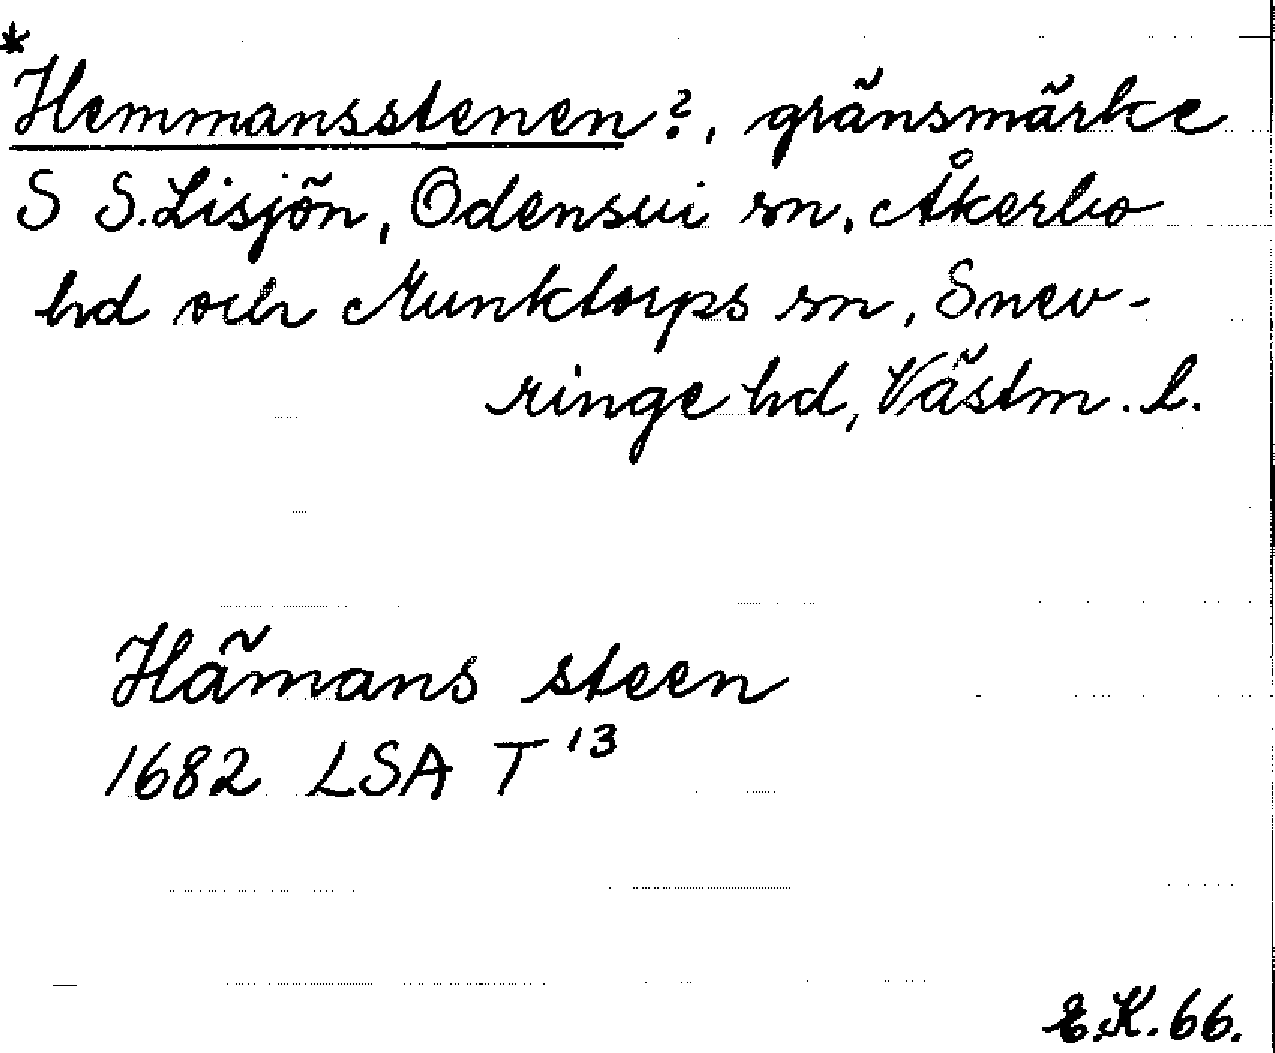 *
Hemmansstenen?, gränsmärke
S S. Lisjön, Odensvi sn, Åkerbo
hd och Munktorps sn, Snev-
ringe hd, Västm. l.
Hämans steen
1682 LSA T 13
E.K. 66.